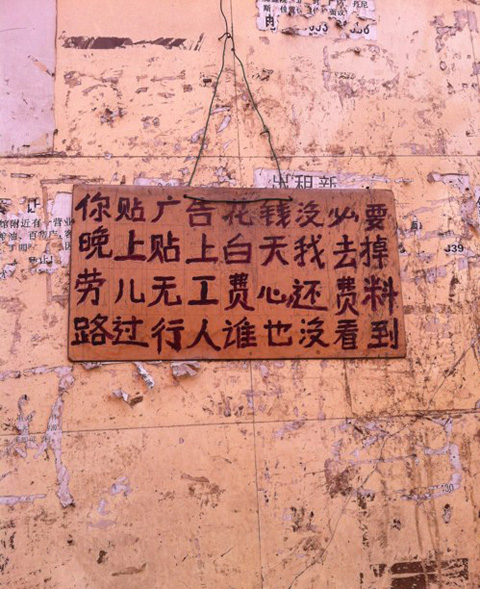 出租新
你贴广告花钱没必要
晚上贴上白天我去掉
劳儿无工费心还费料
路过行人谁也没看到